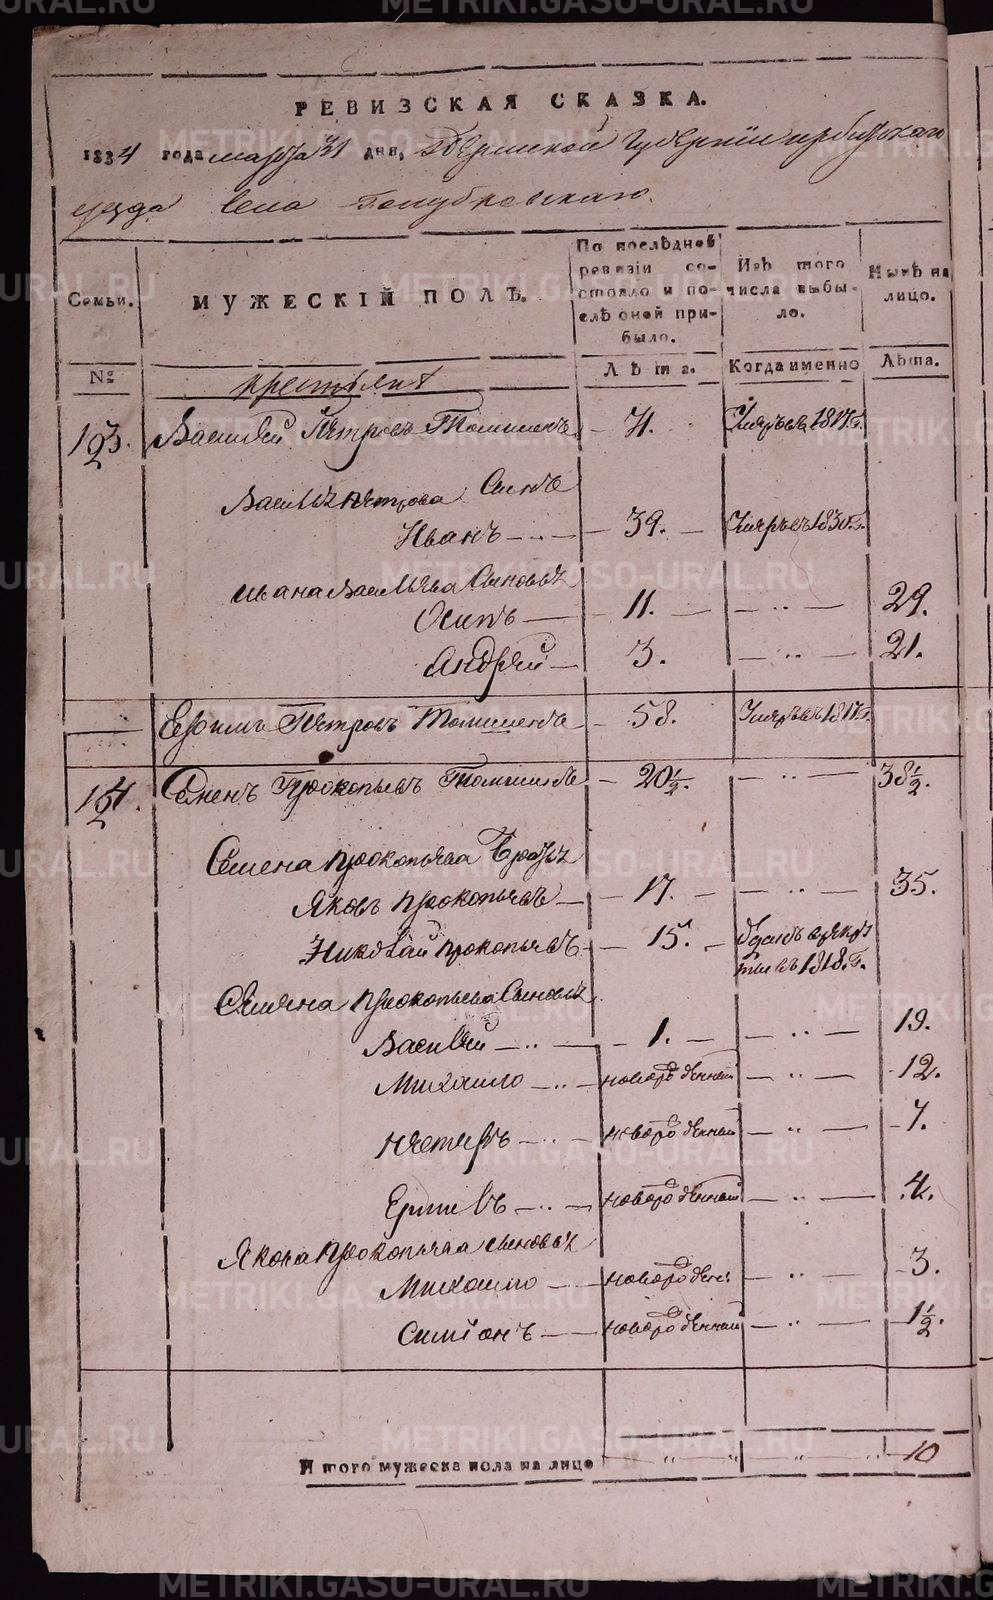 РЕВИЗСКАЯ СКАЗКА.
1834 года марта 31 дня, Пермской Губернии Ирбитскаго
уезда Села Голубковскаго.
Семьи.
МУЖЕСКІЙ ПОЛЪ.
По послѣдней ревизіи состояло и послѣ оной прибыло.
Изъ того числа выбыло.
Нынѣ на лицо.
№
Крестьянъ
Лѣта.
Когда именно
Лѣта.
123. Василей Петровъ Томиловъ 71. Умеръ въ 1817 г.
Василья Петрова Сынъ
Иванъ 39. Умеръ въ 1830 г.
Ивана Васильева Сыновья
Осипъ 11. 29.
Андрей 3. 21.
Ефимъ Петровъ 58. Умеръ въ 1817 г.
124. Семенъ Прокопьевъ 20½ 38½.
Семена Прокопьева Братья
Яковъ Прокопьевъ 17. 35.
Николай Прокопьевъ 15. Отданъ въ рекруты въ 1818. г.
Семена Прокопьева Сыновья
Василей 1. 19.
Михайло новорожденный 12.
Нестеръ новорожденный 7.
новорожденный 4.
Якова Прокопьева сыновья
Михайло новорожден 3.
Симіонъ новорожденный 1½.
И того мужеска пола на лицо 10
METRIKI.GASO-URAL.RU